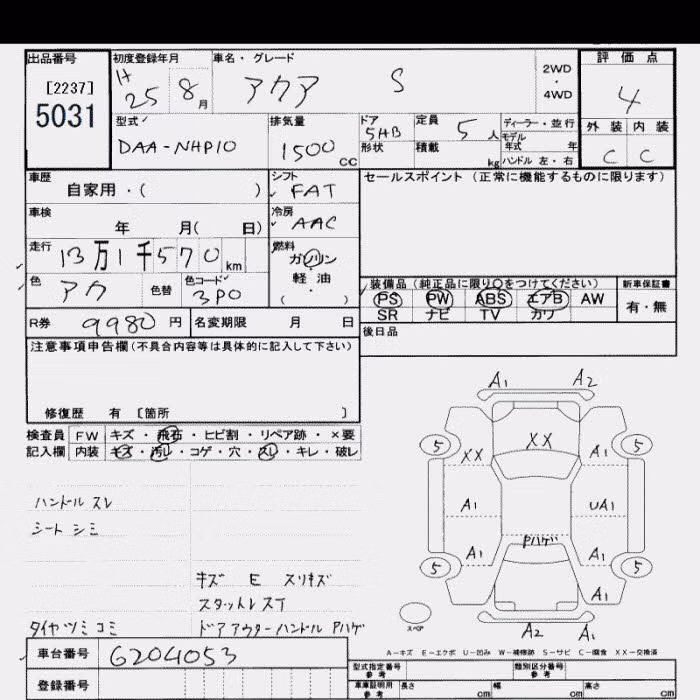 出品番号 初度登録年月 車名・グレード 評価点
[2237] H 25 8月 アクア S 2WD・4WD 4
5031
型式 排気量 ドア 定員 ディーラー・並行 外装 内装
DAA-NHP10 1500 CC 5HB 形状 積載 5人 kg モデル年式 年 ハンドル 左・右 C C
車歴 シフト セールスポイント(正常に機能するものに限ります)
自家用・( ) FAT
車検 冷房
年 月( 日) AAC
走行 燃料
13万1千570km ガソリン
色 色替 色コード 軽油 装備品(純正品に限り○をつけてください) 新車保証書
アカ 3P0 ( ・ ) PS PW ABS エアB AW 有・無
R券 9980円 名変期限 月 日 SR ナビ TV カワ
後日品
注意事項申告欄(不具合内容等は具体的に記入して下さい)
修復歴 有 [箇所 ]
検査員 FW キズ・飛石・ヒビ割・リペア跡・×要
記入欄 内装 キズ・汚レ・コゲ・穴・スレ・キレ・破レ
A1 A2
5 XX XX A1 5
ハンドル スレ
A1 UA1
シート シミ
Pハゲ
A1 A1
5 5
キズ E スリキズ
A1
スタットレス丁
タイヤツミコミ ドアアウターハンドル Pハゲ
スペア A2 A1
A-キズ E-エクボ U-凹み W-補修跡 S-サビ C-腐食 XX-交換済
車台番号 6204053
型式指定番号 参考 類別区分番号 参考
登録番号 車庫証明用 参考 長さ cm 幅 cm 高さ cm